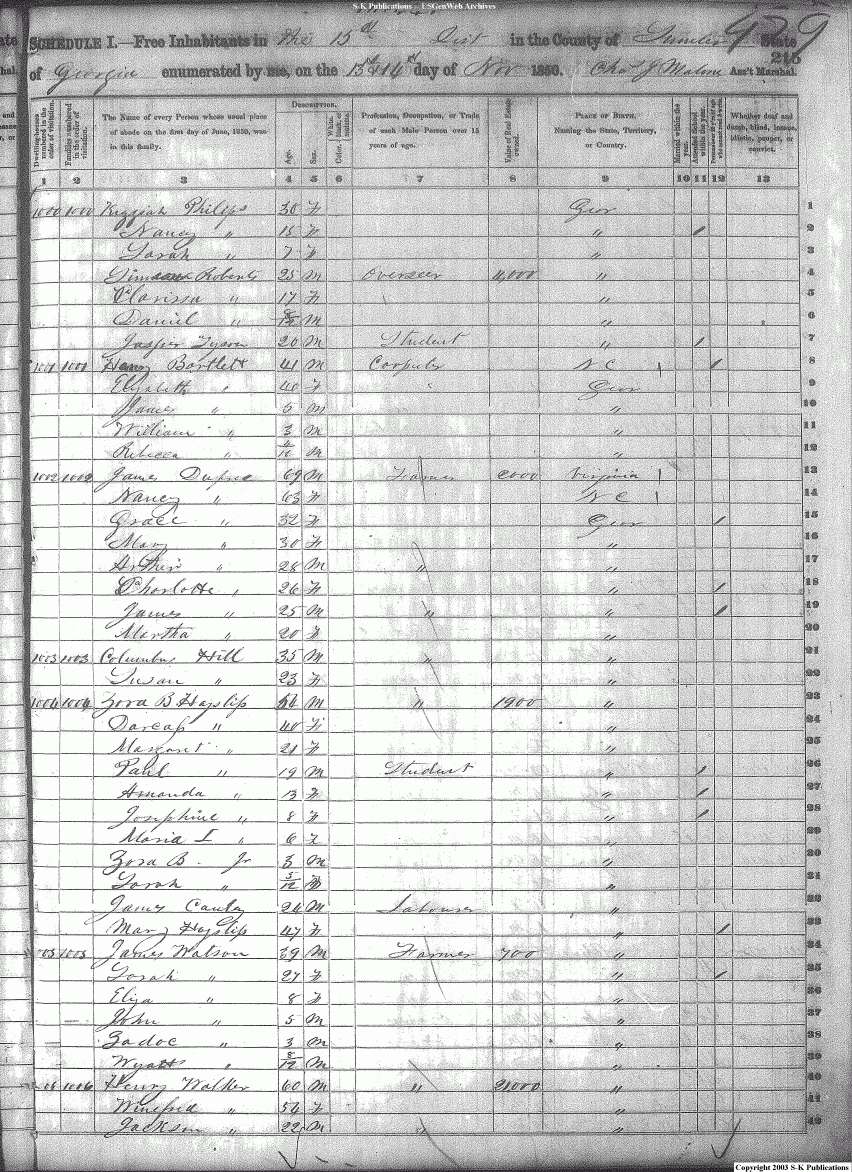 S-K Publications - USGenWeb Archives
429
SCHEDULE I.—Free Inhabitants in the 15th Dist in the County of Sumter State
of Georgia enumerated by me, on the day of Nov 1850. Chas J Malone Ass't Marshal.
215
Dwelling-houses numbered in the order of visitation. Families numbered in the order of visitation. The Name of every Person whose usual place of abode on the first day of June, 1850, was in this family. DESCRIPTION. Age. Sex. Color, White, black, or mulatto. Profession, Occupation, or Trade of each Male Person over 15 years of age. Value of Real Estate owned. PLACE OF BIRTH. Naming the State, Territory, or Country. Married within the year. Attended School within the year. Whether deaf and dumb, blind, insane, idiotic, pauper, or convict.
1 2 3 4 5 6 7 8 9 10 11 12 13
1000 1000 Kizziah Philips 30 F Geor 1
Nancy " 15 F " / 2
Sarah " 7 F " 3
Roberts 25 M Overseer 4,000 " 4
Clarissa " 17 F " 5
Daniel " M " 6
Jasper Tyson 20 M Student " / 7
1001 1001 Henry Bartlett 41 M N C / 8
Elizabeth " 40 F Geor 9
James " 5 M " 10
William " 3 M " 11
Rebecca " M " 12
1002 1002 James Dupree 69 M Farmer 2000 Virginia 13
Nancy " 63 F N C 14
Grace " 32 F Geor / 15
Mary " 30 F " 16
Arthur " 28 M " " 17
Charlotte " 26 F " / 18
James " 25 M " " / 19
Martha " 20 F " 20
1003 1003 Columbus Hill 35 M " " 21
Susan " 23 F " 22
1004 1004 Zora B Hayslip M " 1900 " 23
Darcas " 40 F " 24
Margaret " 21 F " 25
Paul " 19 M Student " / 26
Amanda " 13 F " / 27
Josephine " 8 F " / 28
Maria I " 6 F " 29
Zora B. Jr 3 M " 30
Sarah " 5/12 F " 31
James Cauley 24 M Labourer " 32
Mary Hayslip 47 F " / 33
1005 1005 James Watson 39 M Farmer 700 " 34
Sarah " 27 F " / 35
Eliza " 8 F " 36
John " 5 M " 37
Zadoc " 3 M " 38
Wyatt " 8/12 M " 39
1006 1006 Henry Walker 60 M " 21000 " 40
Winefred " 56 F " 41
Jackson " 22 M " " 42
Copyright 2003 S-K Publications